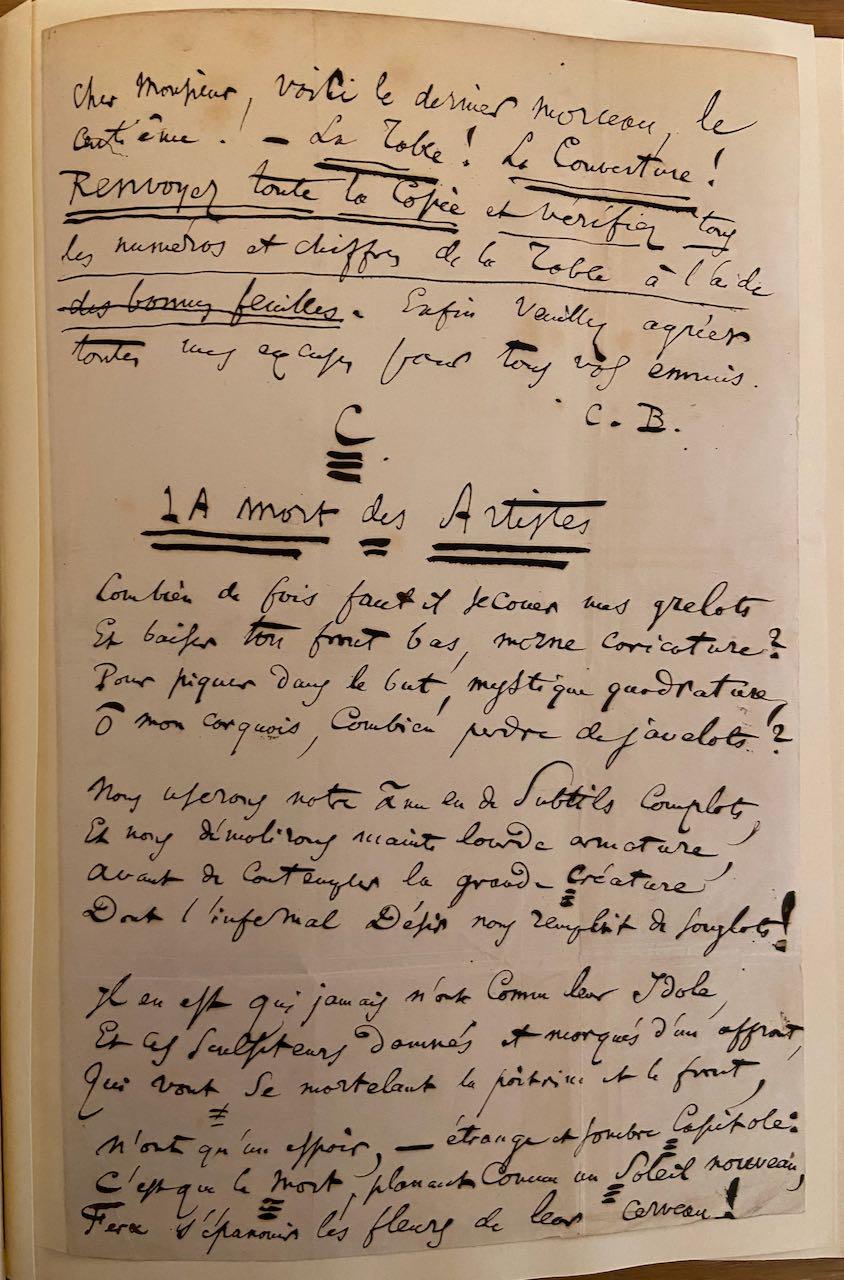 Cher Monsieur, voici le dernier morceau, le
centième. — La Table! La Couverture!
Renvoyez toute la Copie et vérifiez tous
les numéros et chiffres de la Table à l'aide
des bonnes feuilles. Enfin veuillez agréer
toutes mes excuses pour tous vos ennuis.
C. B.
C.
LA mort des Artistes
Combien de fois faut il secouer mes grelots
Et baiser ton front bas, morne caricature?
Pour piquer dans le but, mystique quadrature,
Ô mon carquois, Combien perdre de javelots?
Nous userons notre âme en de Subtils Complots,
Et nous démolirons mainte lourde armature,
avant de Contempler la grande Créature
Dont l'infernal Désir nous remplit de sanglots!
Il en est qui jamais n'ont Connu leur Idole,
Et ces Sculpteurs damnés et marqués d'un affront,
Qui vont Se martelant la poitrine et le front,
n'ont qu'un espoir, — étrange et sombre Capitole:
C'est que la Mort, planant Comme un Soleil nouveau,
Fera s'épanouir les fleurs de leur cerveau!